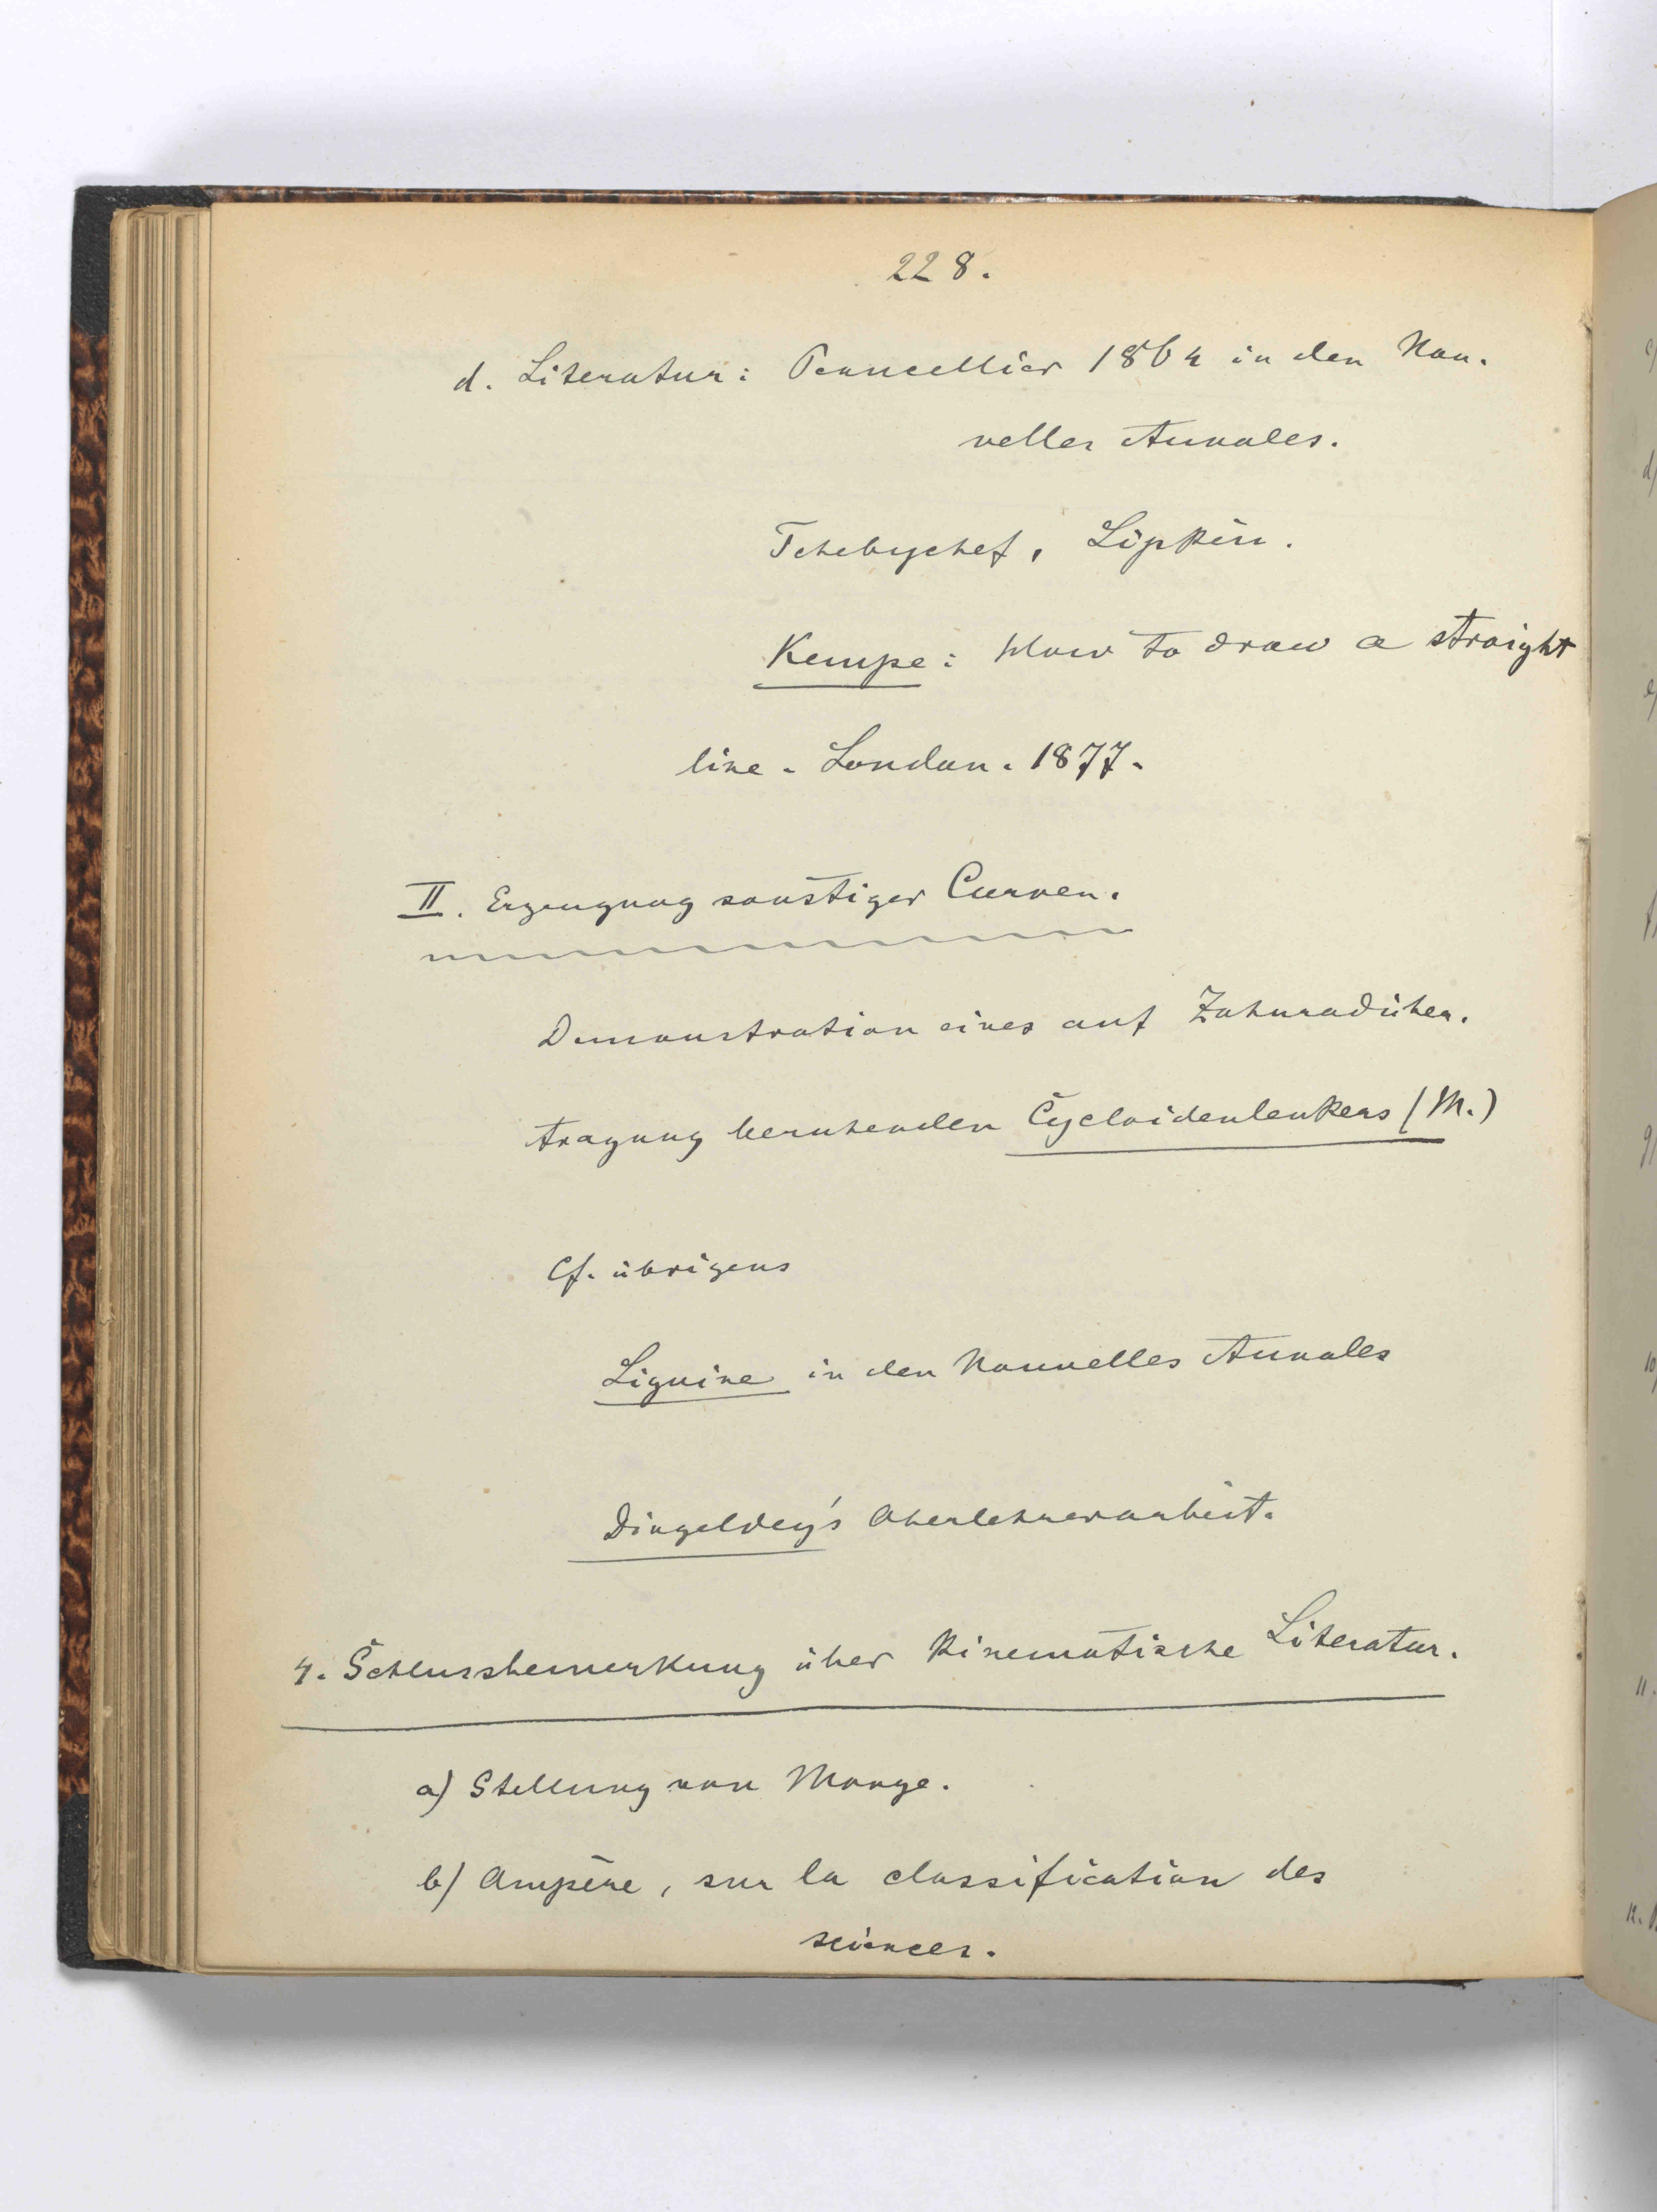 228.
d. Literatur: Peaucellier 1864 in den Nou-
velles Annales.
Tchebychef, Lipkin.
Kempe: How to draw a straight
line. London. 1877.
II. Erzeugung sonstiger Curven.
Demonstration eines auf Zahnradüber-
tragung beruhenden Cycloidenlenkers (M.)
Cf. übrigens
Liguine in den Nouvelles Annales
Dingeldey's Oberlehrerarbeit.
4. Schlussbemerkung über kinematische Literatur.
a) Stellung von Monge.
b) Ampère, sur la classification des
sciences.